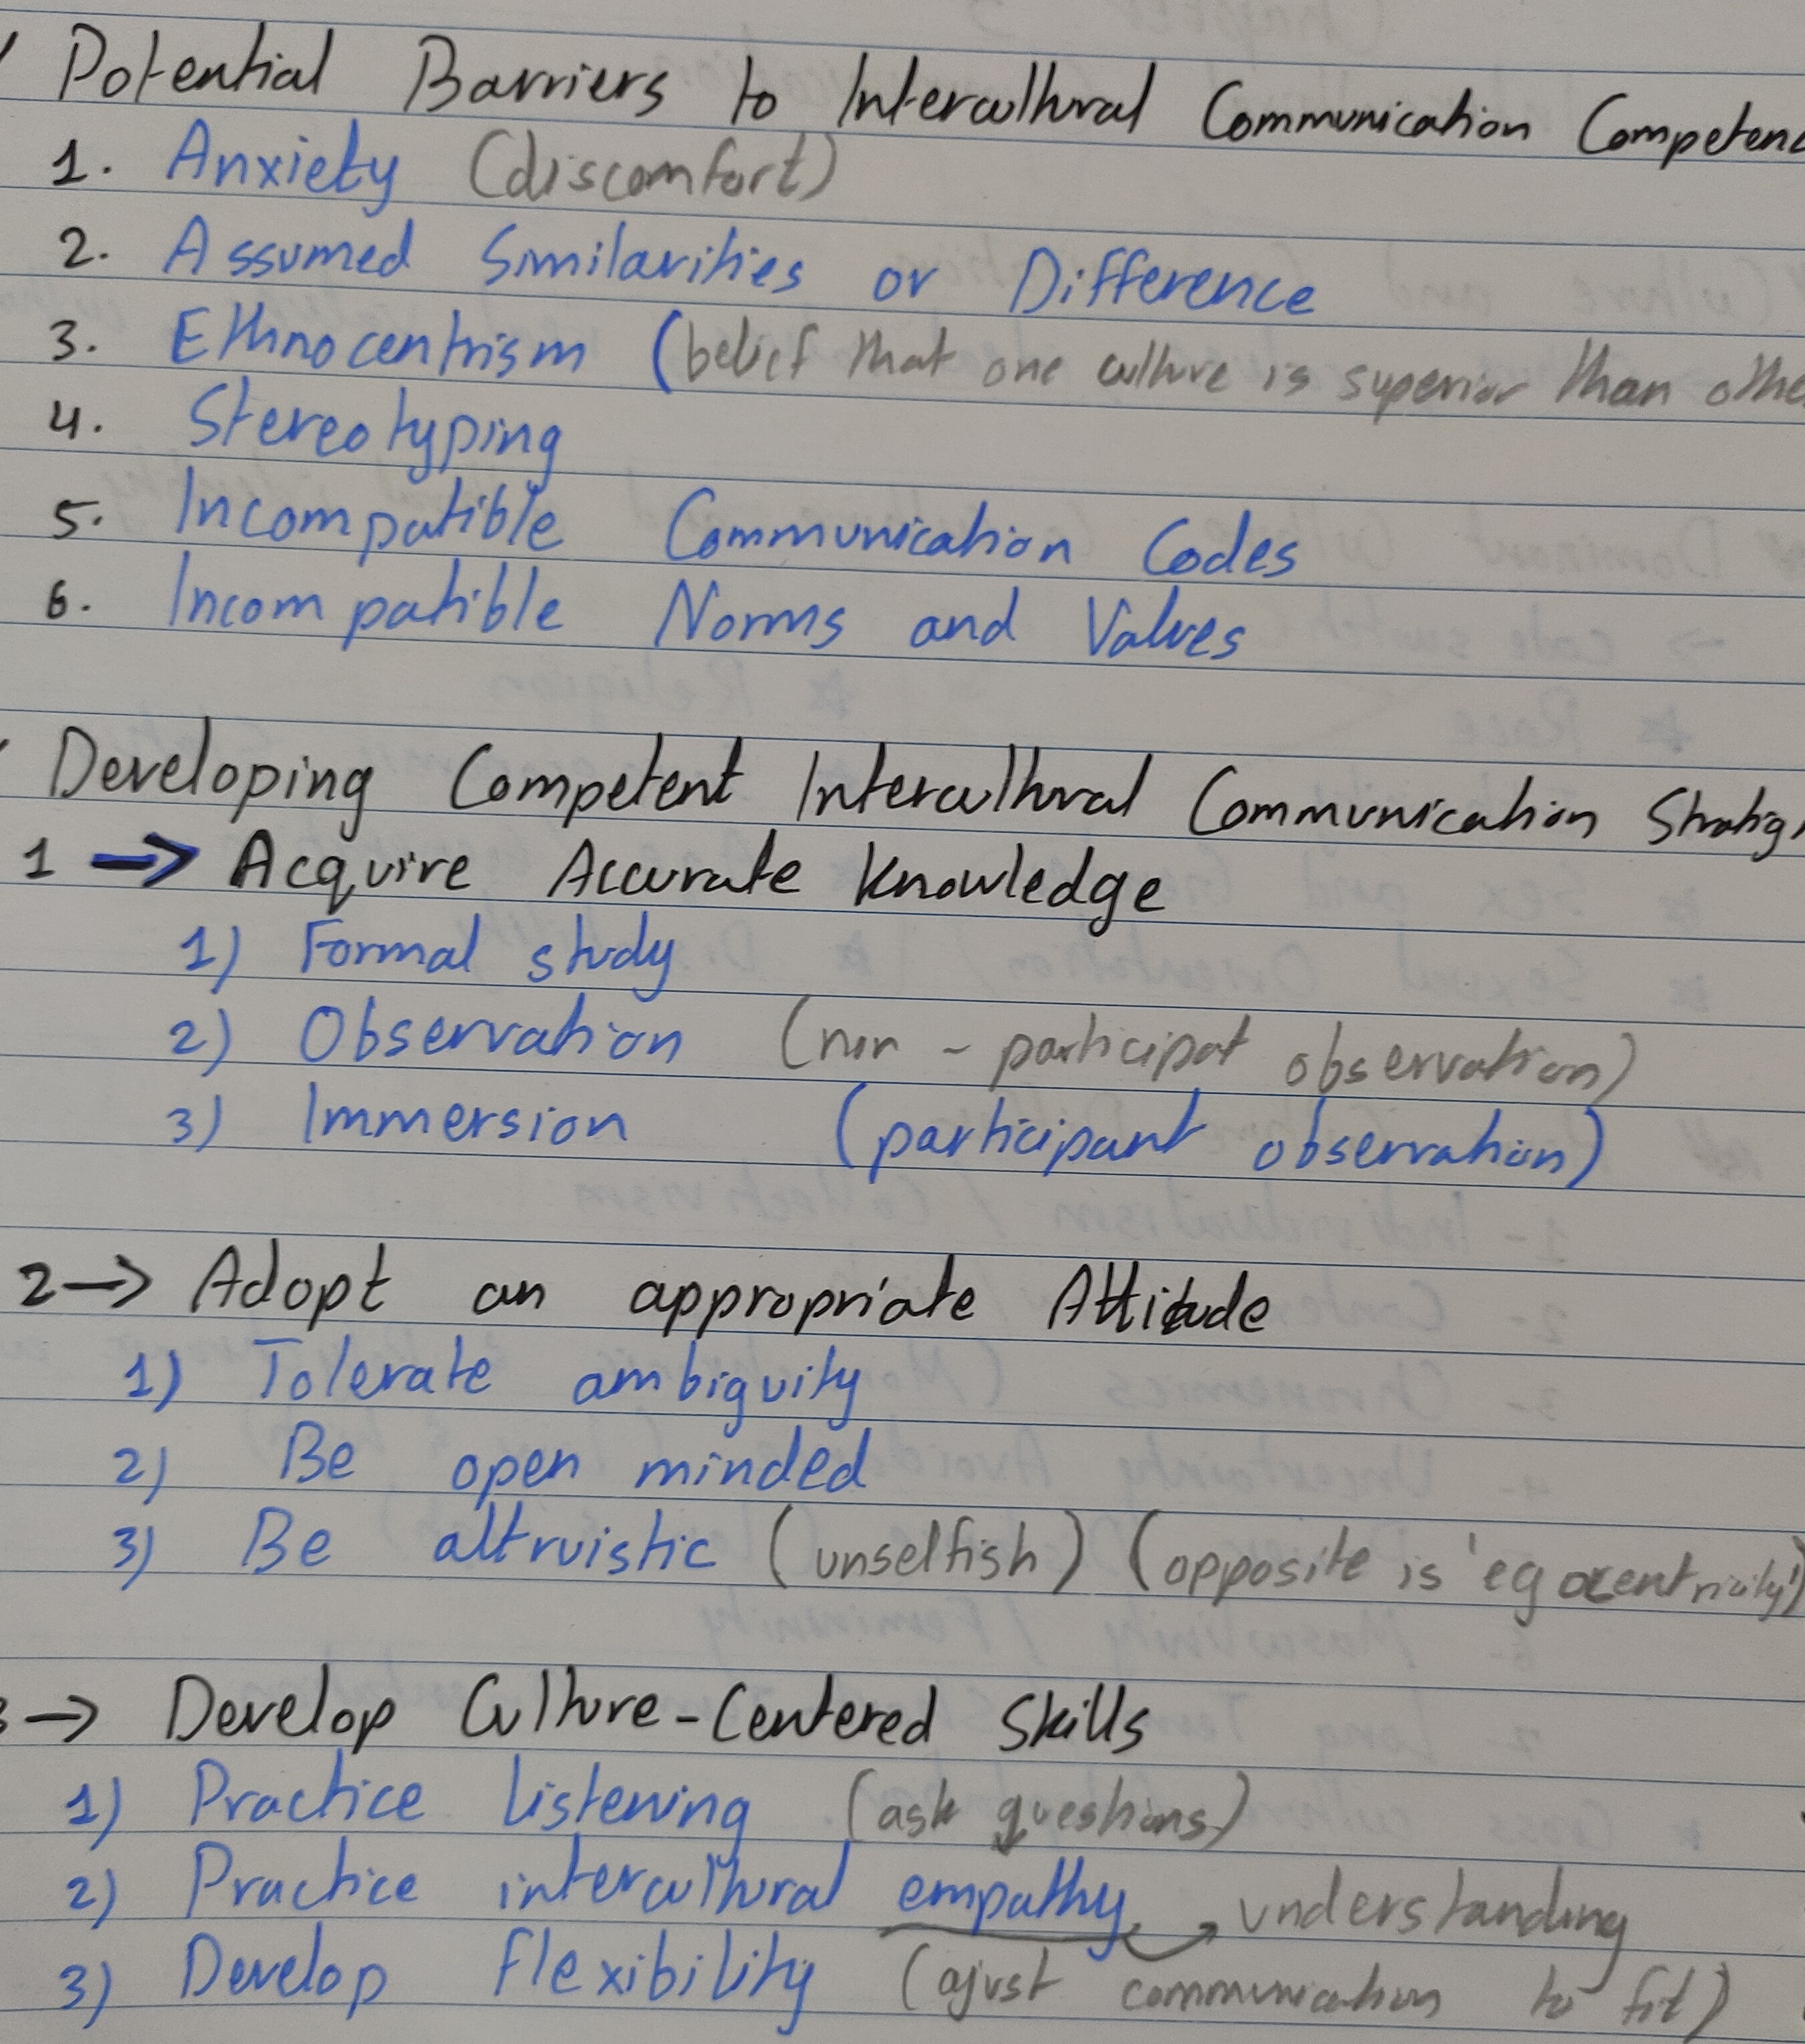 Potential Barriers to Intercultural Communication Competenc
1. Anxiety (discomfort)
2. Assumed Similarities or Difference
3. Ethnocentrism (belief that one culture is superior than othe
4. Stereotyping
5. Incompatible Communication Codes
6. Incompatible Norms and Values
Developing Competent Intercultural Communication Stratig
1 → Acquire Accurate Knowledge
1) Formal study
2) Observation (non - participat observation)
3) Immersion (participant observation)
2 → Adopt an appropriate Attitude
1) Tolerate ambiguity
2) Be open minded
3) Be altruistic (unselfish) (opposite is 'egocentricity')
3 → Develop Culture-Centered Skills
1) Practice listening (ask questions)
2) Practice intercultural empathy → understanding
3) Develop flexibility (ajust communication to fit)